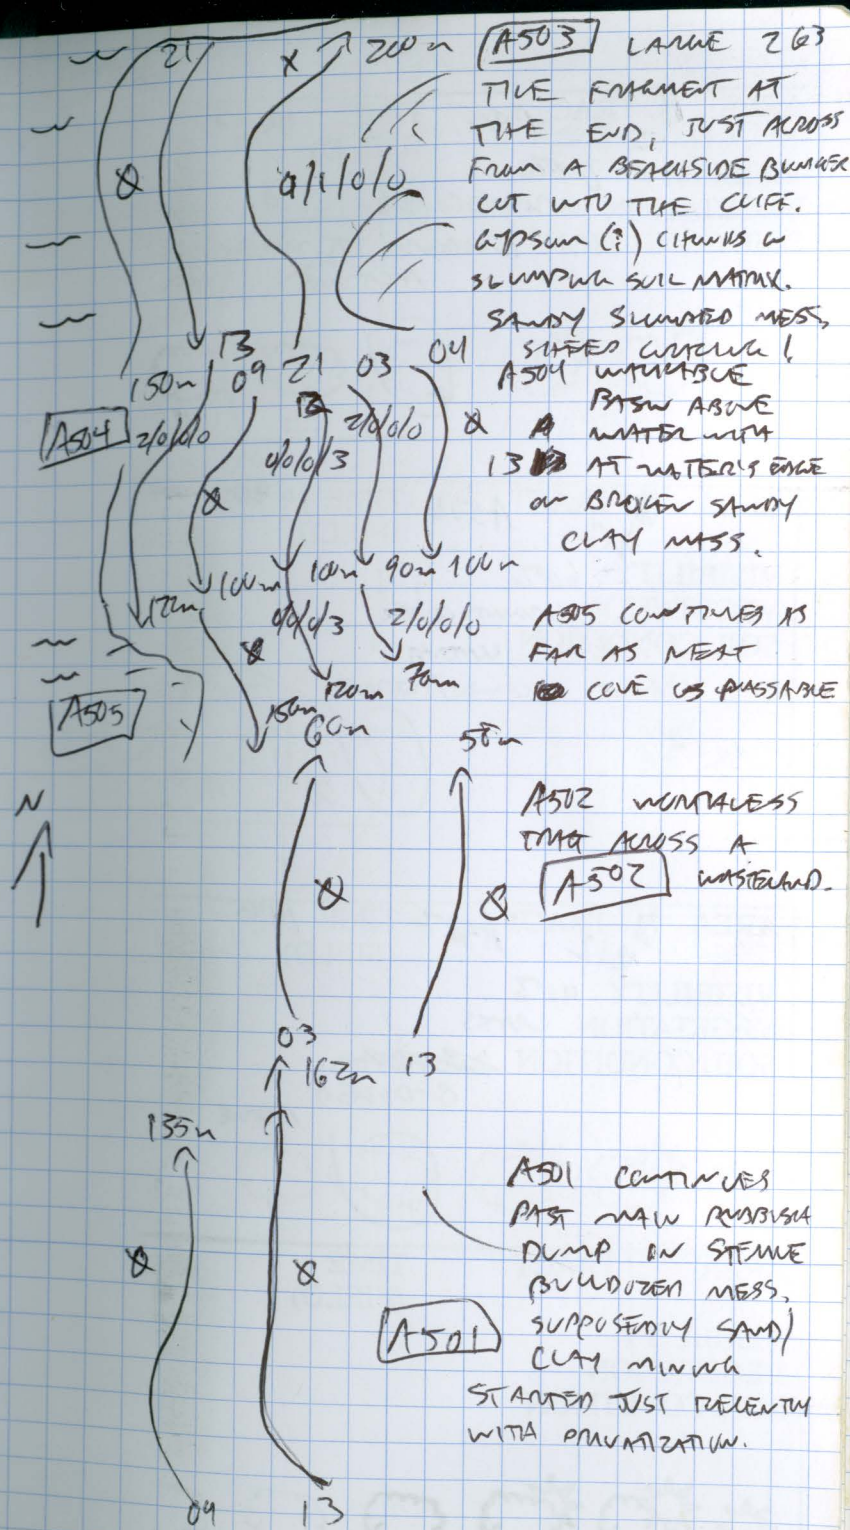 21 X 200m A503 LARGE 263
TILE FRAGMENT AT
THE END, JUST ACROSS
FROM A BEACHSIDE BUNKER
0/1/0/0 CUT INTO THE CLIFF.
GYPSUM (?) CHUNKS IN
SLUMPING SOIL MATRIX.
SANDY SLUMPED MESS,
SHEEP GRAZING!
13
150m 09 21 03 04
A504 WALKABLE
BASIN ABOVE
A504 2/0/0/0 0/0/0/3 2/0/0/0 WATER WITH
13 AT WATER'S EDGE
ON BROKEN SANDY
CLAY MASS.
122m 100m 100m 90m 100m
0/0/0/3 2/0/0/0 A505 CONTINUES AS
FAR AS NEXT
COVE IS PASSABLE
A505 150m 120m 70m
60m 58m
N
A502 WORTHLESS
TRACT ACROSS A
A502 WASTELAND.
03
162m 13
135m
A501 CONTINUES
PAST MAIN RUBBISH
DUMP IN STERILE
BULLDOZED MESS.
SUPPOSEDLY SAND/
A501 CLAY MINING
STARTED JUST RECENTLY
WITH PRIVATIZATION.
09 13